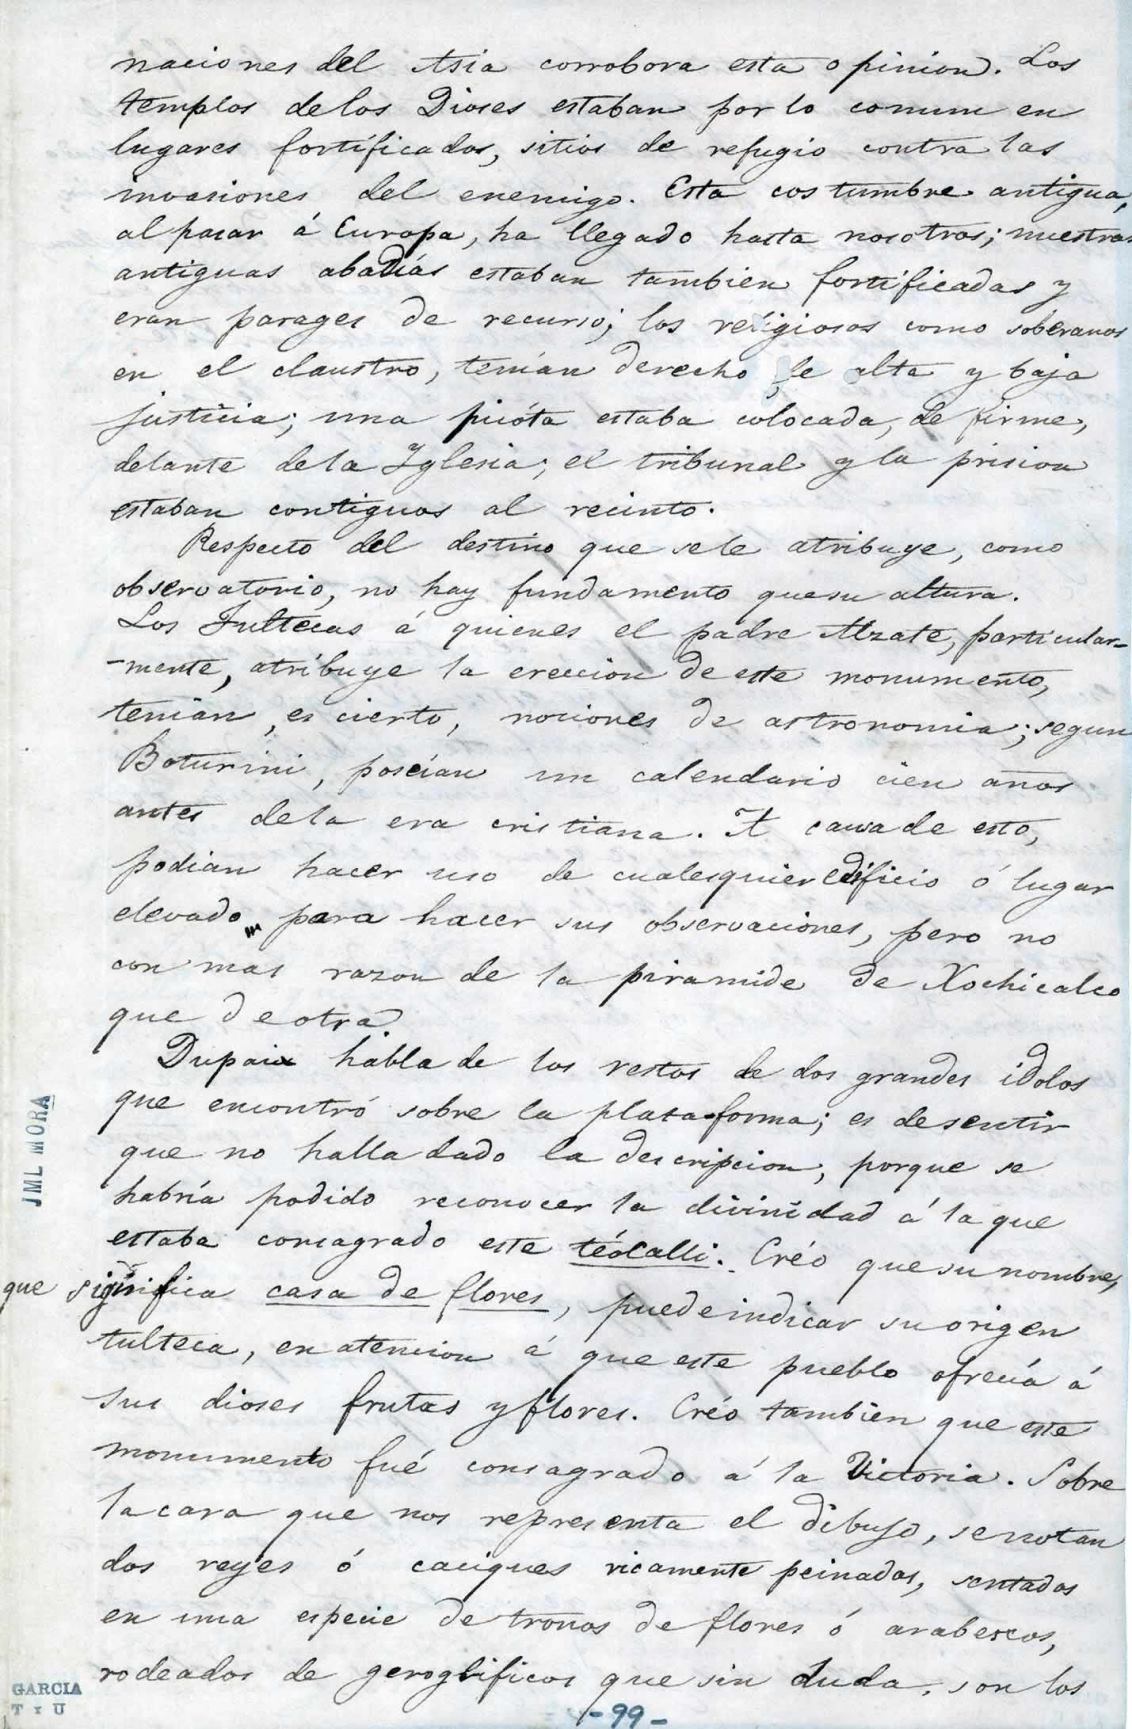 naciones del Asia corrobora esta opinion. Los
templos de los Dioses estaban por lo comun en
lugares fortificados, sitios de refugio contra las
invasiones del enemigo. Esta costumbre antigua,
al pasar á Europa, ha llegado hasta nosotros; nuestras
antiguas abadías estaban tambien fortificadas y
eran parages de recurso; los religiosos como soberanos
en el claustro, tenian derecho de alta y baja
justicia; una picóta estaba colocada, de firme,
delante de la Iglesia; el tribunal y la prision
estaban contiguos al recinto.
Respecto del destino que se le atribuye, como
observatorio, no hay fundamento que su altura.
Los Tultecas á quienes el padre Alzate, particular-
-mente, atribuye la ereccion de este monumento,
tenian, es cierto, nociones de astronomia; segun
Boturini, poseían un calendario cien años
antes de la era cristiana. A causa de esto,
podian hacer uso de cualesquier edificio ó lugar
elevado para hacer sus observaciones, pero no
con mas razon de la piramide de Xochicalco
que de otra.
Dupaix habla de los restos de dos grandes idolos
que encontró sobre la plataforma; es de sentir
que no halla dado la descripcion, porque se
habría podido reconocer la divinidad á la que
estaba consagrado este téocalli. Créo que su nombre,
que significa casa de flores, puede indicar su origen
tulteca, en atencion á que este pueblo ofrecía á
sus dioses frutas y flores. Créo tambien que este
monumento fué consagrado á la Victoria. Sobre
la cara que nos representa el dibujo, se notan
dos reyes ó caciques ricamente peinados, sentados
en una especie de tronos de flores ó arabescos,
rodeados de geroglificos que sin duda, son los
-99-
JML MORA
GARCIA
T Y U